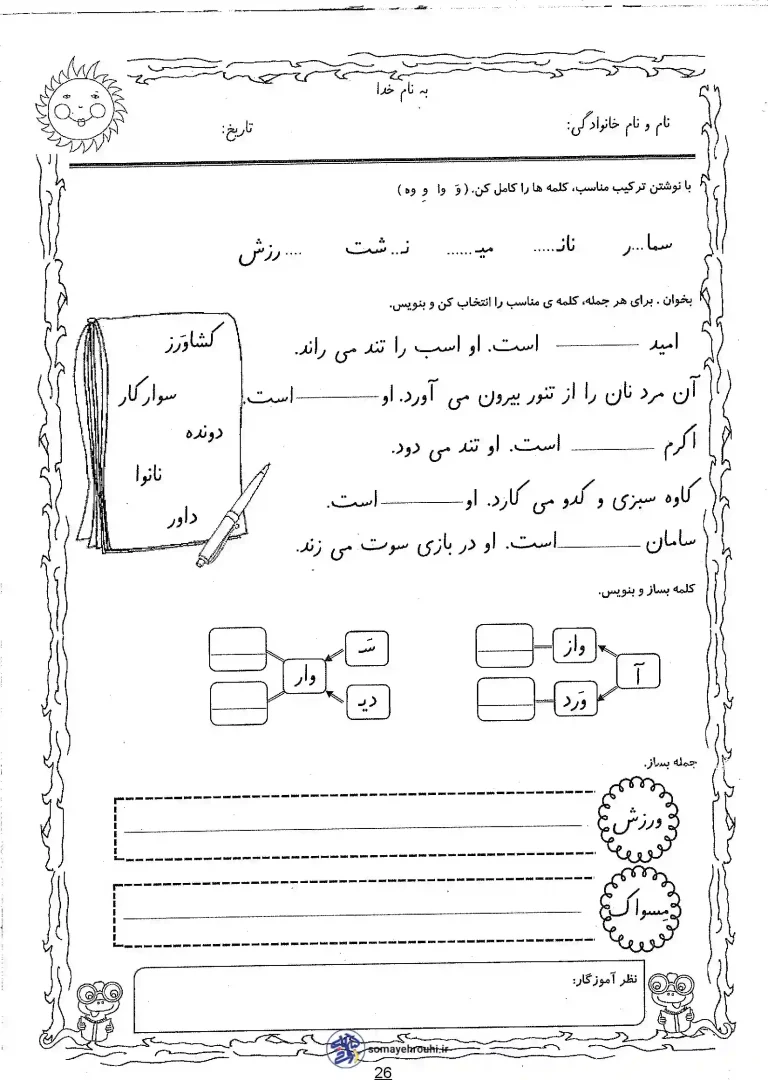 به نام خدا
نام و نام خانوادگی:
تاریخ:
با نوشتن ترکیب مناسب، کلمه ها را کامل کن. ( وَ وا وِ وه )
سما...ر نانـ..... میـ...... نـ...شت .... رزش
بخوان . برای هر جمله، کلمه ی مناسب را انتخاب کن و بنویس.
امید ــــــــــ است. او اسب را تند می راند.
آن مرد نان را از تنور بیرون می آورد. او ــــــــــ است.
اکرم ــــــــــ است. او تند می دود.
کاوه سبزی و کدو می کارد. او ــــــــــ است.
سامان ــــــــــ است. او در بازی سوت می زند.
کشاوَرز
سوارکار
دونده
نانوا
داور
کلمه بساز و بنویس.
آ
واز
وَرد
سَـ
دیـ
وار
جمله بساز.
ورزش
مِسواک
نظر آموزگار:
somayehrouhi.ir
26